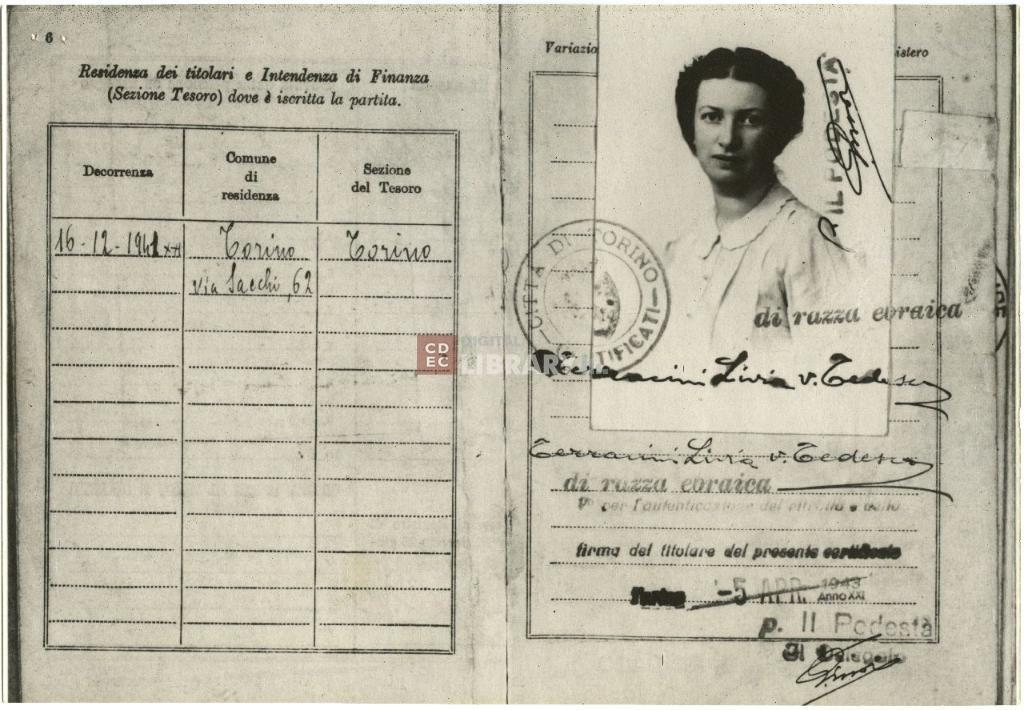 6
Residenza dei titolari e Intendenza di Finanza
(Sezione Tesoro) dove è iscritta la partita.
Decorrenza
Comune
di
residenza
Sezione
del Tesoro
16-12-1941 XX
Torino
Torino
via Sacchi, 62
CD
EC
DIGITAL
LIBRARY
Variazio
istero
p. IL PODESTÀ
CITTÀ DI TORINO
CERTIFICATI
di razza ebraica
Terracini Livia v. Tedesco
Terracini Livia v. Tedesco
di razza ebraica
V° per l'autenticazione del ritratto e della
firma del titolare del presente certificato
Torino -5 APR. 1943
Anno XXI
p. Il Podestà
Il Delegato